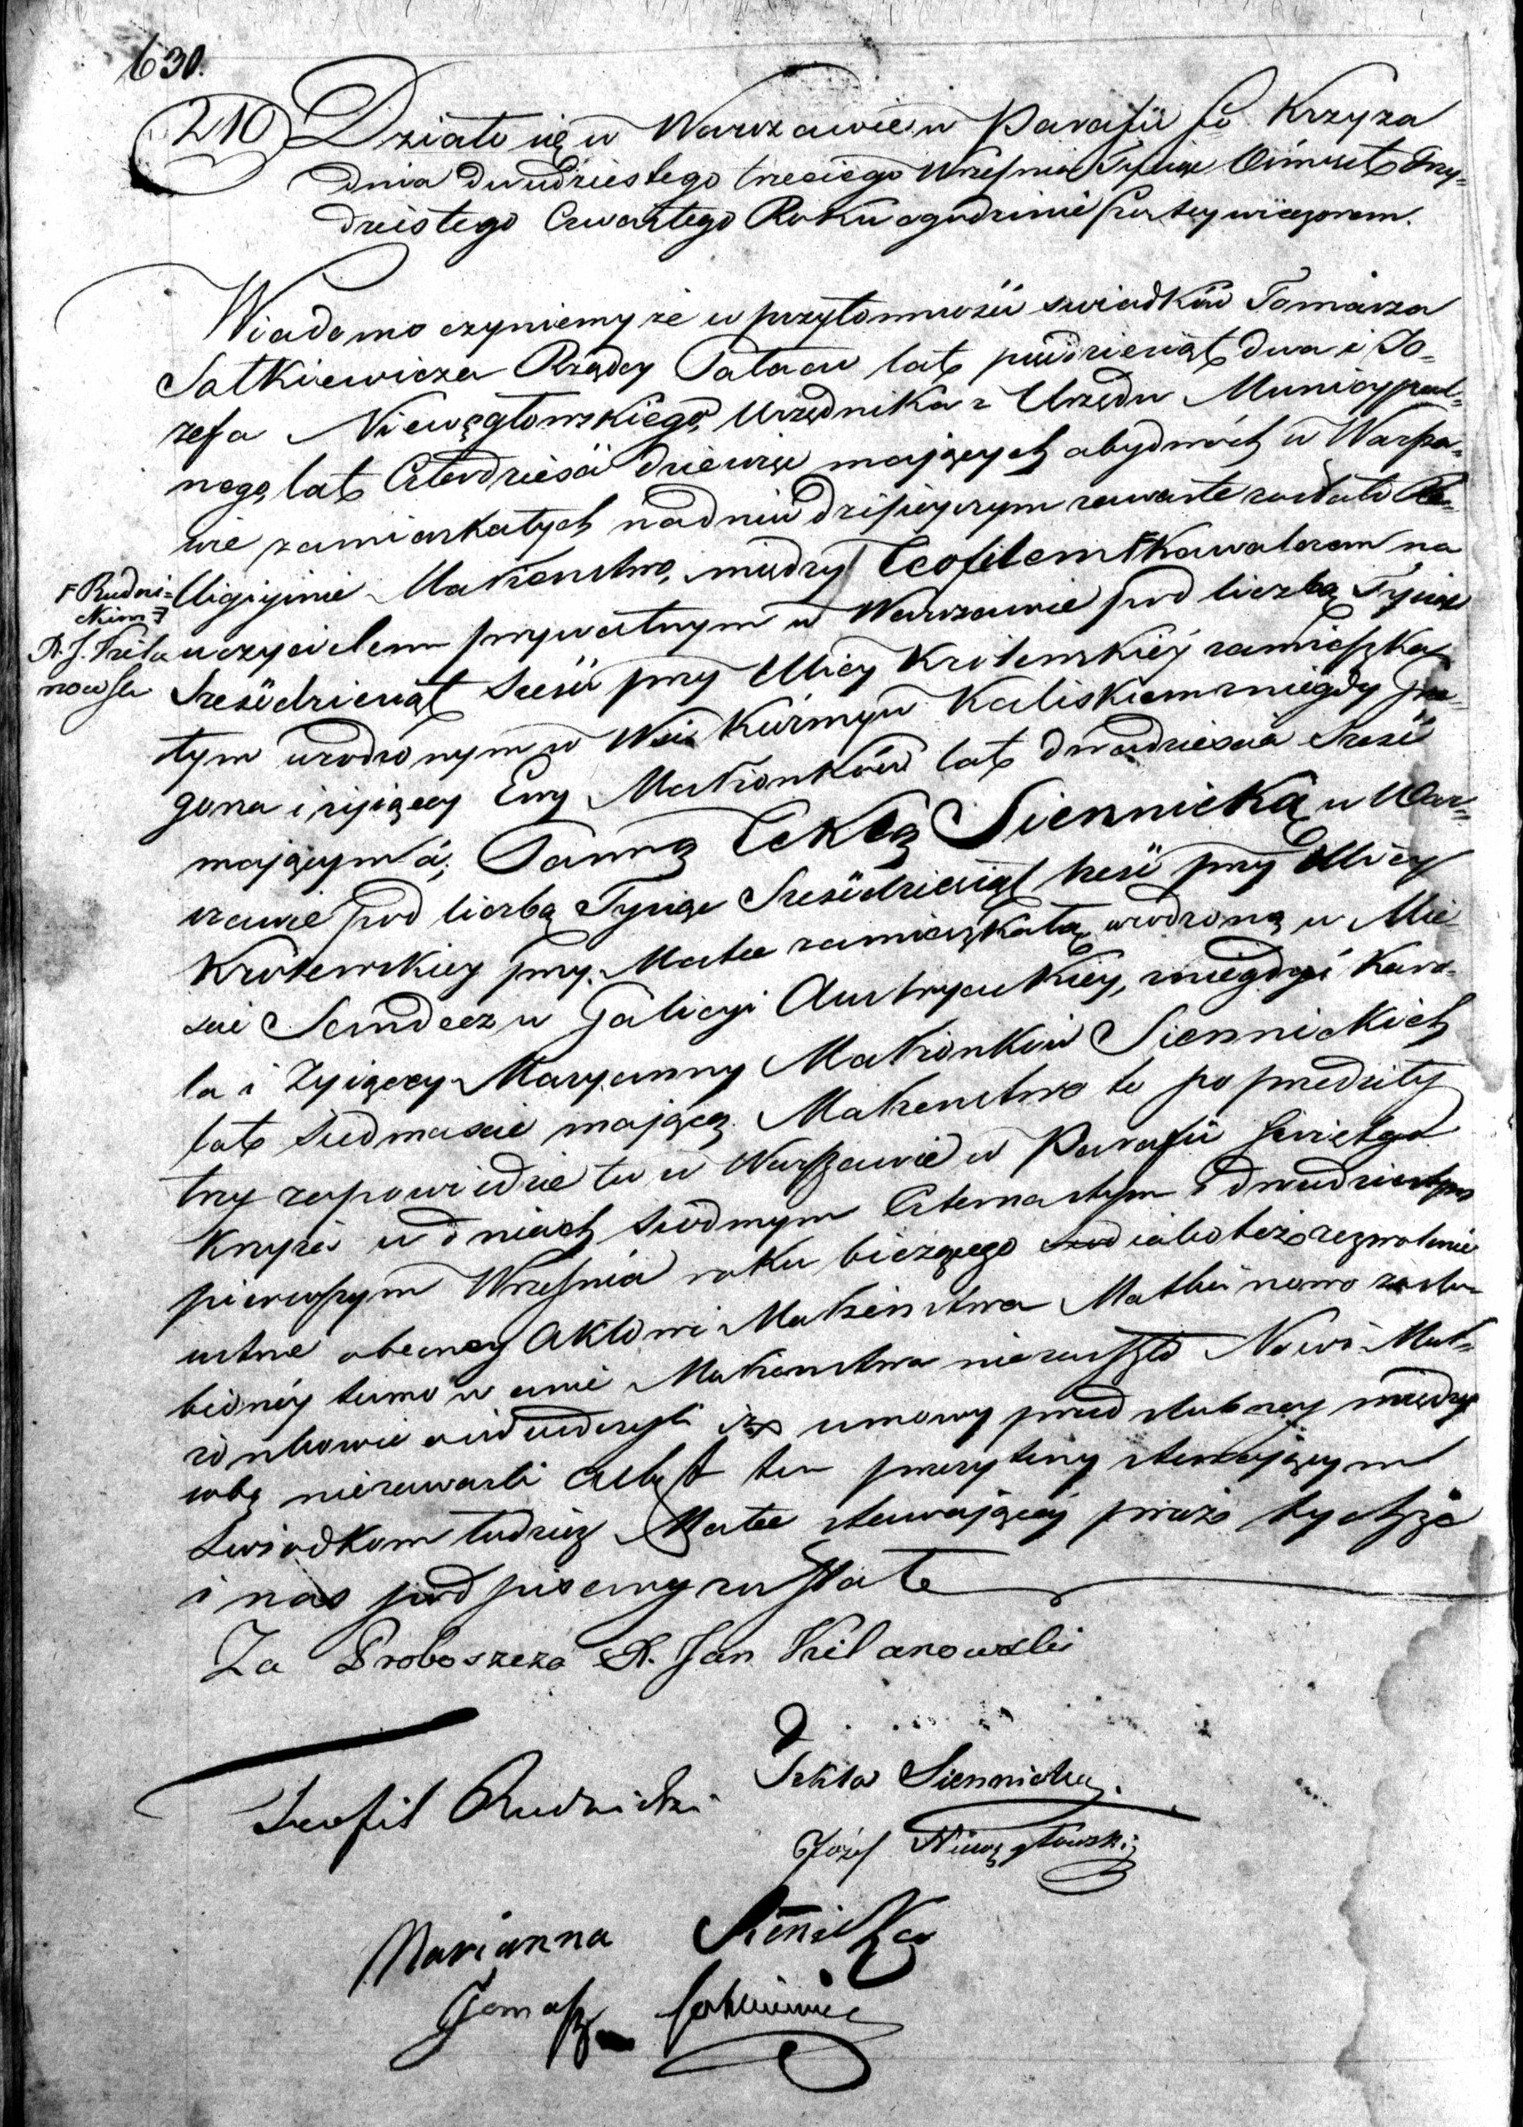 630.
210 Działo się w Warszawie w Parafii Sº Krzyża
dnia dwudziestego trzeciego Wrześnja Tysiąc Ośmset Trzy=
dziestego Czwartego Roku o godzinie szostey wieczorem.
Wiadomo czyniemy że w przytomności swiadków Tomasza
Satkiewicza Rządcy Pałacu lat pięćdziesiąt dwa i Jo=
zefa Niewęgłowskiego, Urzędnika z Urzędu Municypal=
nego, lat Czterdzieści dziewięć mających obydwóch w Warsza=
wie zamieszkałych na dniu dzisieyszym zawarte zostało Re=
ligijnie Małżeństwo, między Teofilem F Kawalerem na
F Rudni=
ckim F
X. J. Kila
nowski
uczycielem prywatnym w Warszawie pod liczbą Tysiąc
Sześćdziesiąt sześć przy Ulicy Krolewskiéy zamieszka=
łym urodzonym w Wsi Kuźmy w Kaliskiem z niegdy
gona i żyiącey Ewy Małżonków lat dwadzieścia sześć
mającym á, Panną Teklą Siennicką w War=
szawie pod liczbą Tysiąc Sześćdziesiąt sześć przy Ulicy
Krolewskiey przy Matce zamieszkałą urodzoną w Mie=
scie Sendecz w Galicyi Austryackiey, z niegdyś Karo=
la i Żyiącey Maryanny Małżonków Siennickich
lat siedmnaście mającą. Małżeństwo to poprzedziły
trzy zapowiedzie tu w Warszawie w Parafii Świętego
Krzyża w dniach siódmym Czternastym i dwudziestym
pierwszym Wrześnja roku bieżącego iako też zezwolenie
ustne obecney Aktowi Małżeństwa Matki nowo zaślu=
bionéy tamowanie Małżeństwa niezaszło Nowi Mał=
żonkowie oświadczyli iż umowy przed slubney między
sobą niezawarli Akt ten przeczytany stawającym
Swiadkom tudzież Matce stawającéj przez tychże
i nas podpisany został
Za Proboszcza X. Jan Kilanowski
Teofil Rudnicki
Tekla Siennicka.
Józef Niewęgłowski
Marianna Sienicka
Tomasz Satkiewicz